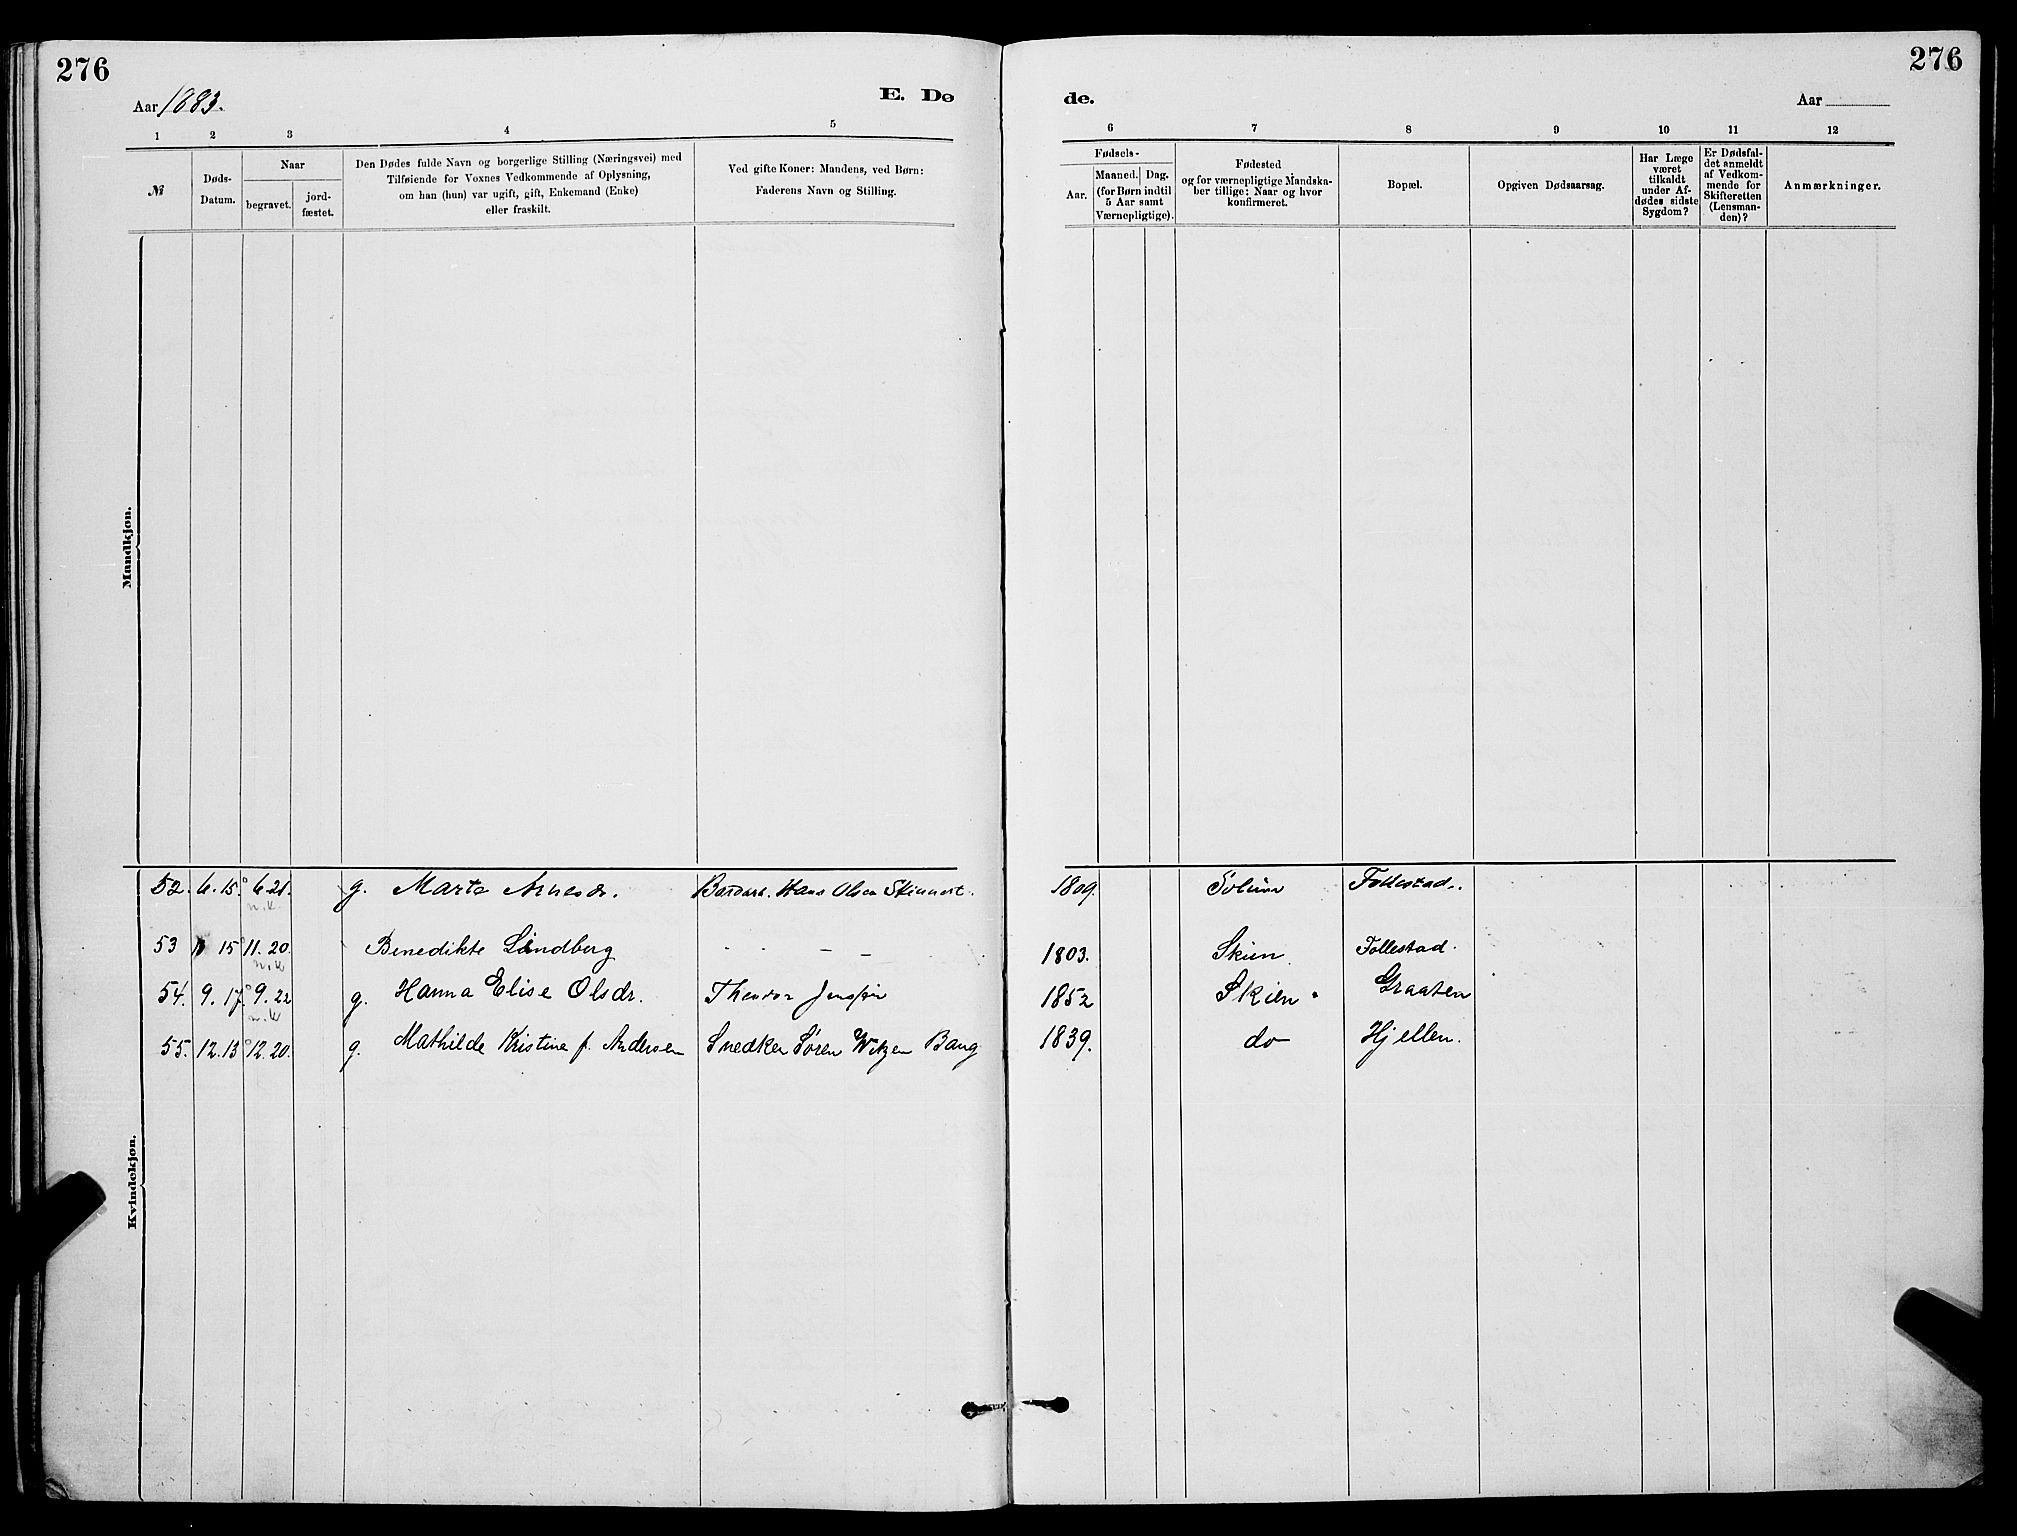 276
276
Aar 1883.
E. Dø
de.
Aar
1 2 3 4 5 6 7 8 9 10 11 12
№
Døds-
Datum.
Naar
begravet.
jord-
fæstet.
Den Dødes fulde Navn og borgerlige Stilling (Næringsvei) med
Tilføiende for Voxnes Vedkommende af Oplysning,
om han (hun) var ugift, gift, Enkemand (Enke)
eller fraskilt.
Ved gifte Koner: Mandens, ved Børn:
Faderens Navn og Stilling.
Fødsels-
Aar.
Maaned. Dag.
(for Børn indtil
5 Aar samt
Værnepligtige).
Fødested
og for værnepligtige Mandska-
ber tillige: Naar og hvor
konfirmeret.
Bopæl.
Opgiven Dødsaarsag.
Har Læge
været
tilkaldt
under Af-
dødes sidste
Sygdom?
Er Dødsfal-
det anmeldt
af Vedkom-
mende for
Skifteretten
(Lensman-
den)?
Anmærkninger.
Mandkjøn.
Kvindekjøn.
52. 6. 15. 6. 21. g. Marte Arnesdr. Hans Olsen 1809. Solum Follestad.
n.k.
53 15 11. 20. Benedikte Lindberg - - - 1803. Skien. Follestad.
n.k
54. 9. 17. 9. 22 g. Hanna Elise Olsdr. Theodor Jenssen 1852 Skien Graaten
n.k
55. 12. 13 12. 20. g. Mathilde Kristine f. Andersen Snedker Søren Bang 1839. do Hjellen.